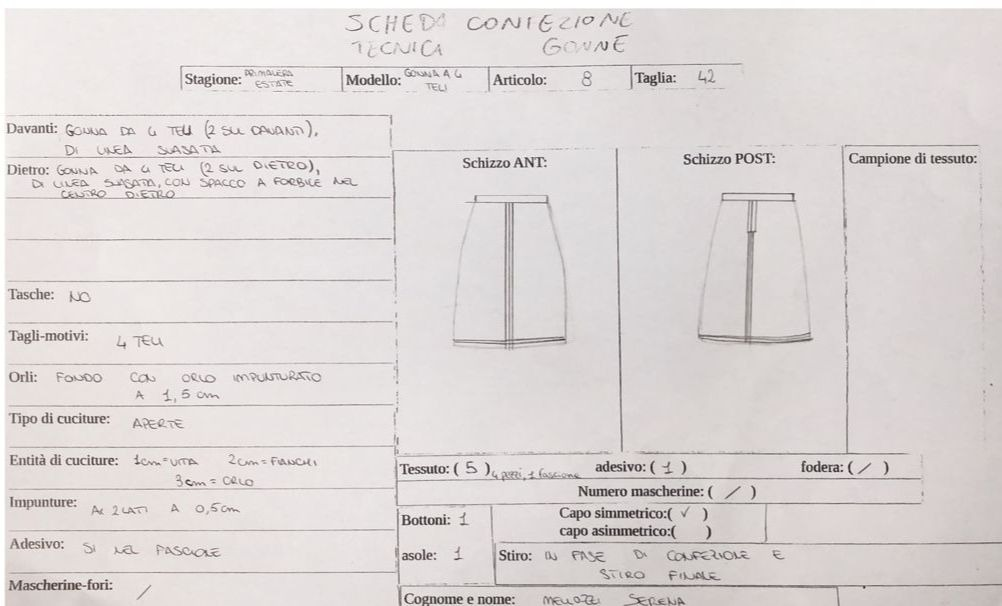 SCHEDA CONFEZIONE
TECNICA GONNE
Stagione: PRIMAVERA ESTATE Modello: GONNA A 4 TELI Articolo: 8 Taglia: 42
Davanti: GONNA DA 4 TELI (2 SUL DAVANTI),
DI LINEA SVASATA
Dietro: GONNA DA 4 TELI (2 SUL DIETRO),
DI LINEA SVASATA, CON SPACCO A FORBICE NEL
CENTRO DIETRO
Tasche: NO
Tagli-motivi: 4 TELI
Orli: FONDO CON ORLO IMPUNTURATO
A 1,5 cm
Tipo di cuciture: APERTE
Entità di cuciture: 1cm=VITA 2cm=FIANCHI
3cm=ORLO
Impunture: AI 2 LATI A 0,5cm
Adesivo: SI NEL FASCIONE
Mascherine-fori: /
Schizzo ANT:
Schizzo POST:
Campione di tessuto:
Tessuto: ( 5 ) 4 pezzi, 1 fascione adesivo: ( 1 ) fodera: ( / )
Numero mascherine: ( / )
Bottoni: 1
Capo simmetrico:( ✓ )
capo asimmetrico:( )
asole: 1
Stiro: IN FASE DI CONFEZIONE E
STIRO FINALE
Cognome e nome: MELOZZI SERENA